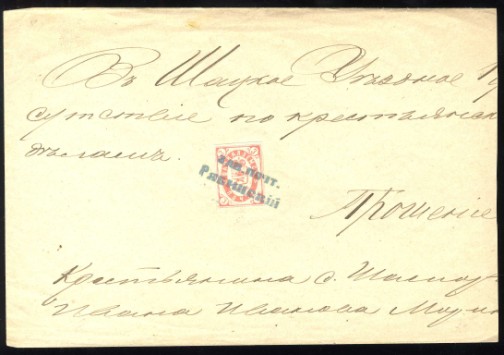 Въ Шацкое Уѣздное Пр
сутствие по крестьянск
дѣламъ.
зем. почт.
Прошение
Крестьянина с.
Ивана Иванова